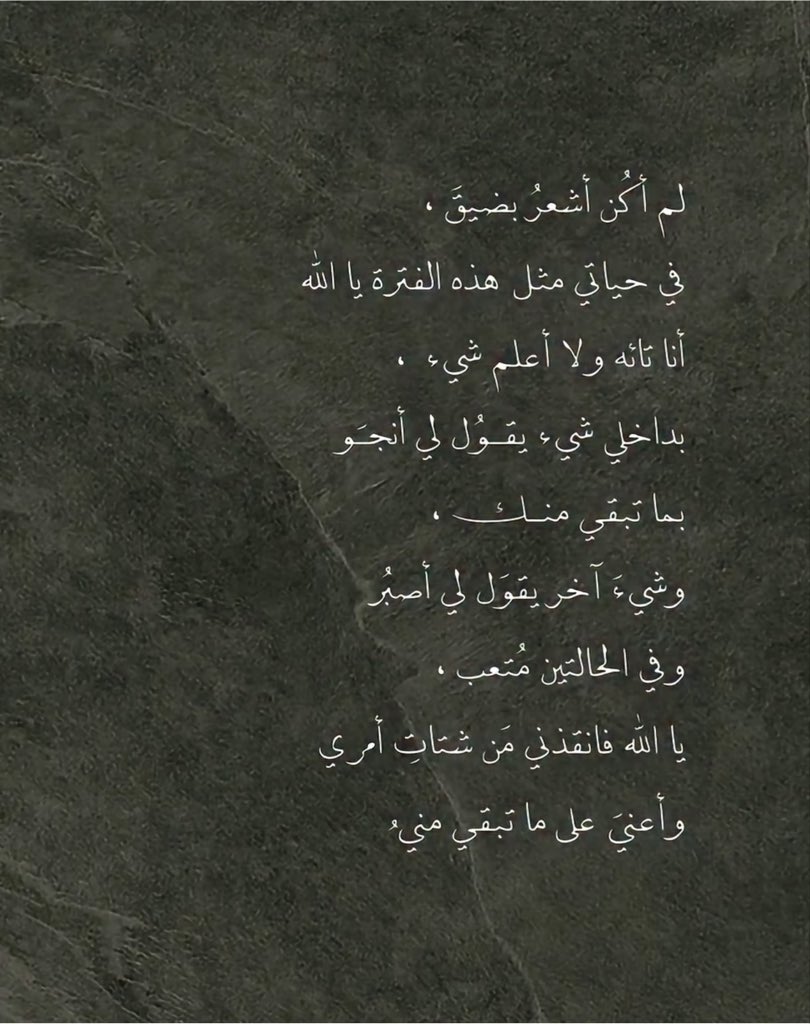 لم أكُن أشعرُ بضيقَ ،
في حياتي مثل هذه الفترة يا الله
أنا تائه ولا أعلم شيء ،
بداخلي شيء يقـوُل لي أنجـَو
بما تبقي منـك ،
وشيءَ آخر يقوَل لي أصبُر
وفي الحالتين مُتعب ،
يا الله فانقذني مَن شتاتِ أمري
وأعنيَ على ما تبقي منيُ